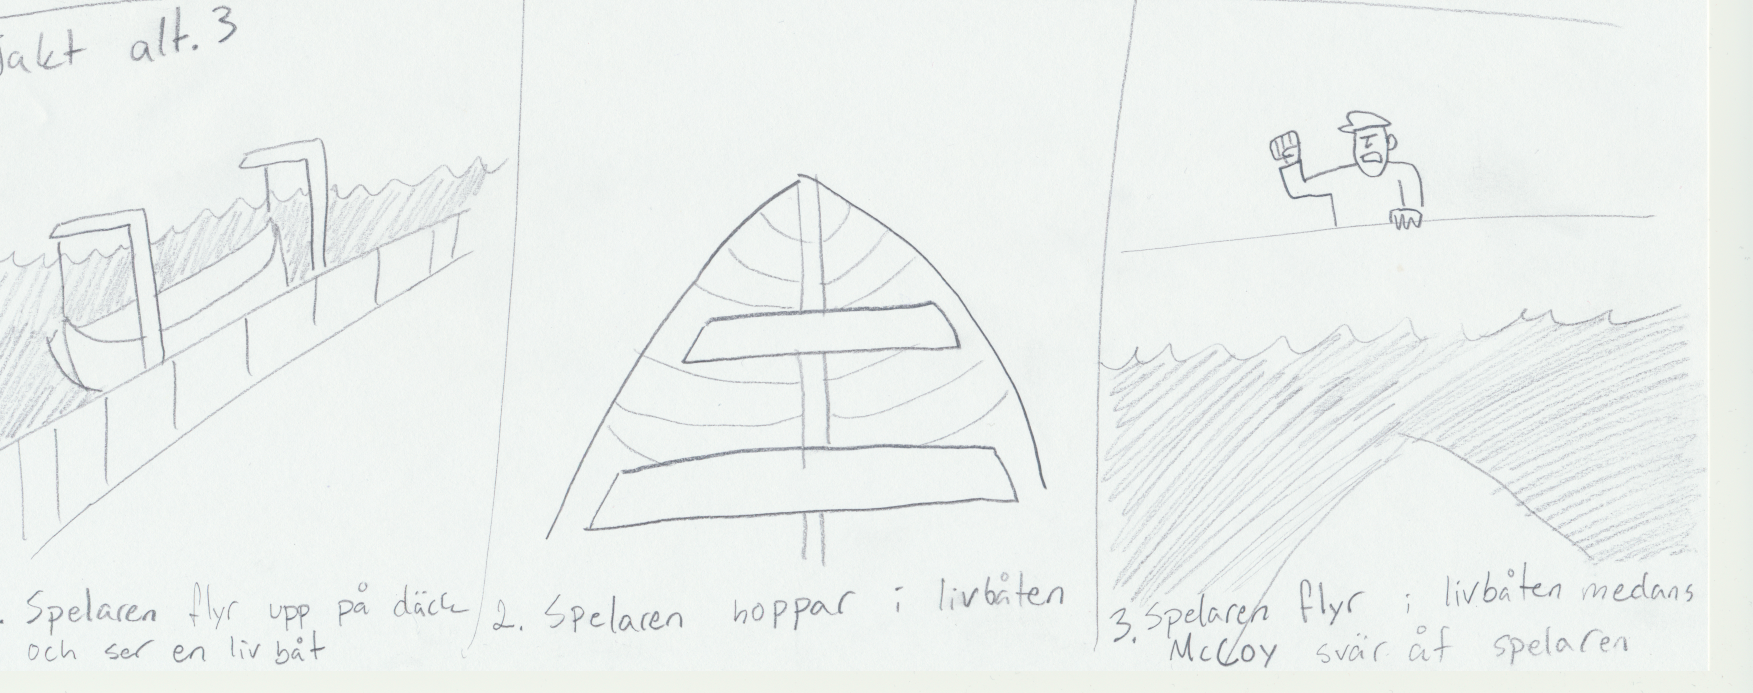 jakt alt.3
. Spelaren flyr upp på däck
och ser en livbåt
2. Spelaren hoppar i livbåten
3. Spelaren flyr i livbåten medans
McCoy svär åt spelaren